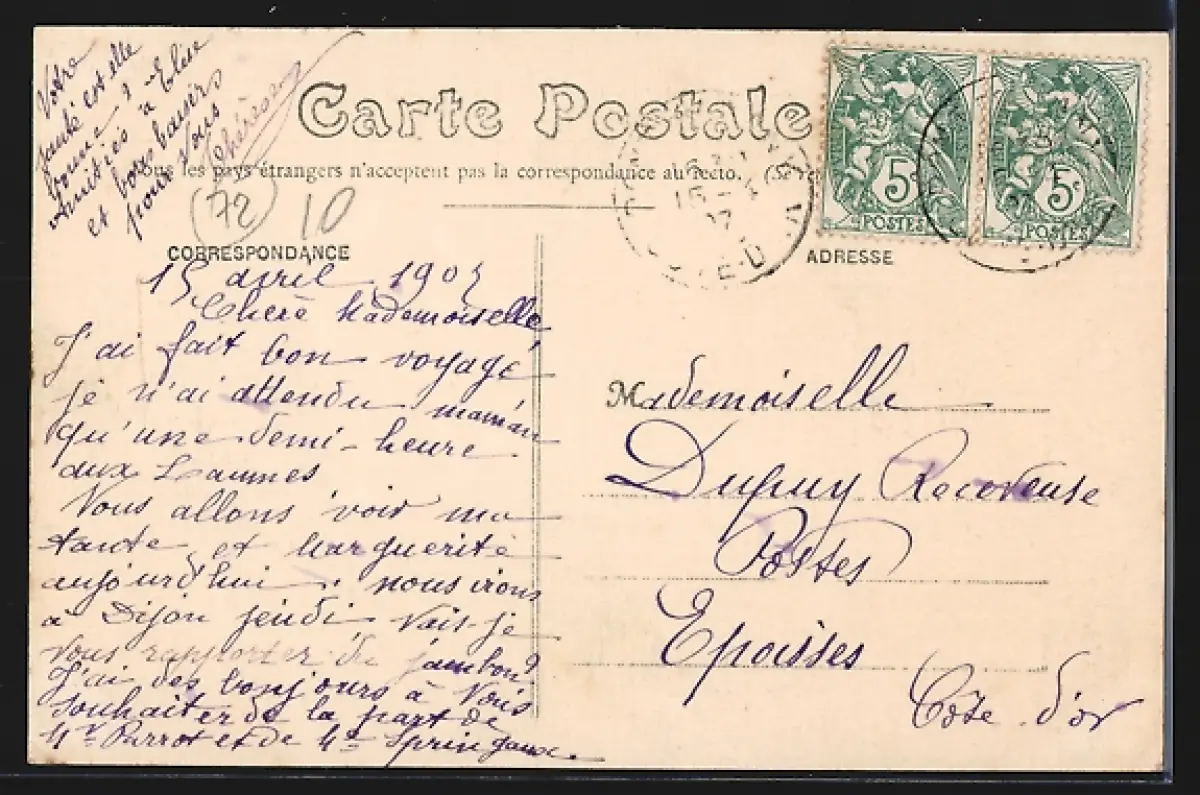 Carte Postale
Tous les pays étrangers n'acceptent pas la correspondance au recto. (Se
5c
POSTES
5c
POSTES
72
10
CORRESPONDANCE
15 avril 190
Chère Mademoiselle
J'ai fait bon voyage
je n'ai attendu maman
qu'une demi-heure
aux Laumes
Nous allons voir ma
tante et Marguerite
aujourd'hui, nous irons
à Dijon jeudi. Vais-je
vous rapporter du jambon?
J'ai des bonjours à vous
souhaiter de la part de
et de
Votre
santé est elle
bonne ?
Amitiés à Elise
et bons baisers
pour vous
Thérèse
ADRESSE
Mademoiselle
Dupuy Receveuse
Postes
Epoisses
Côte d'or